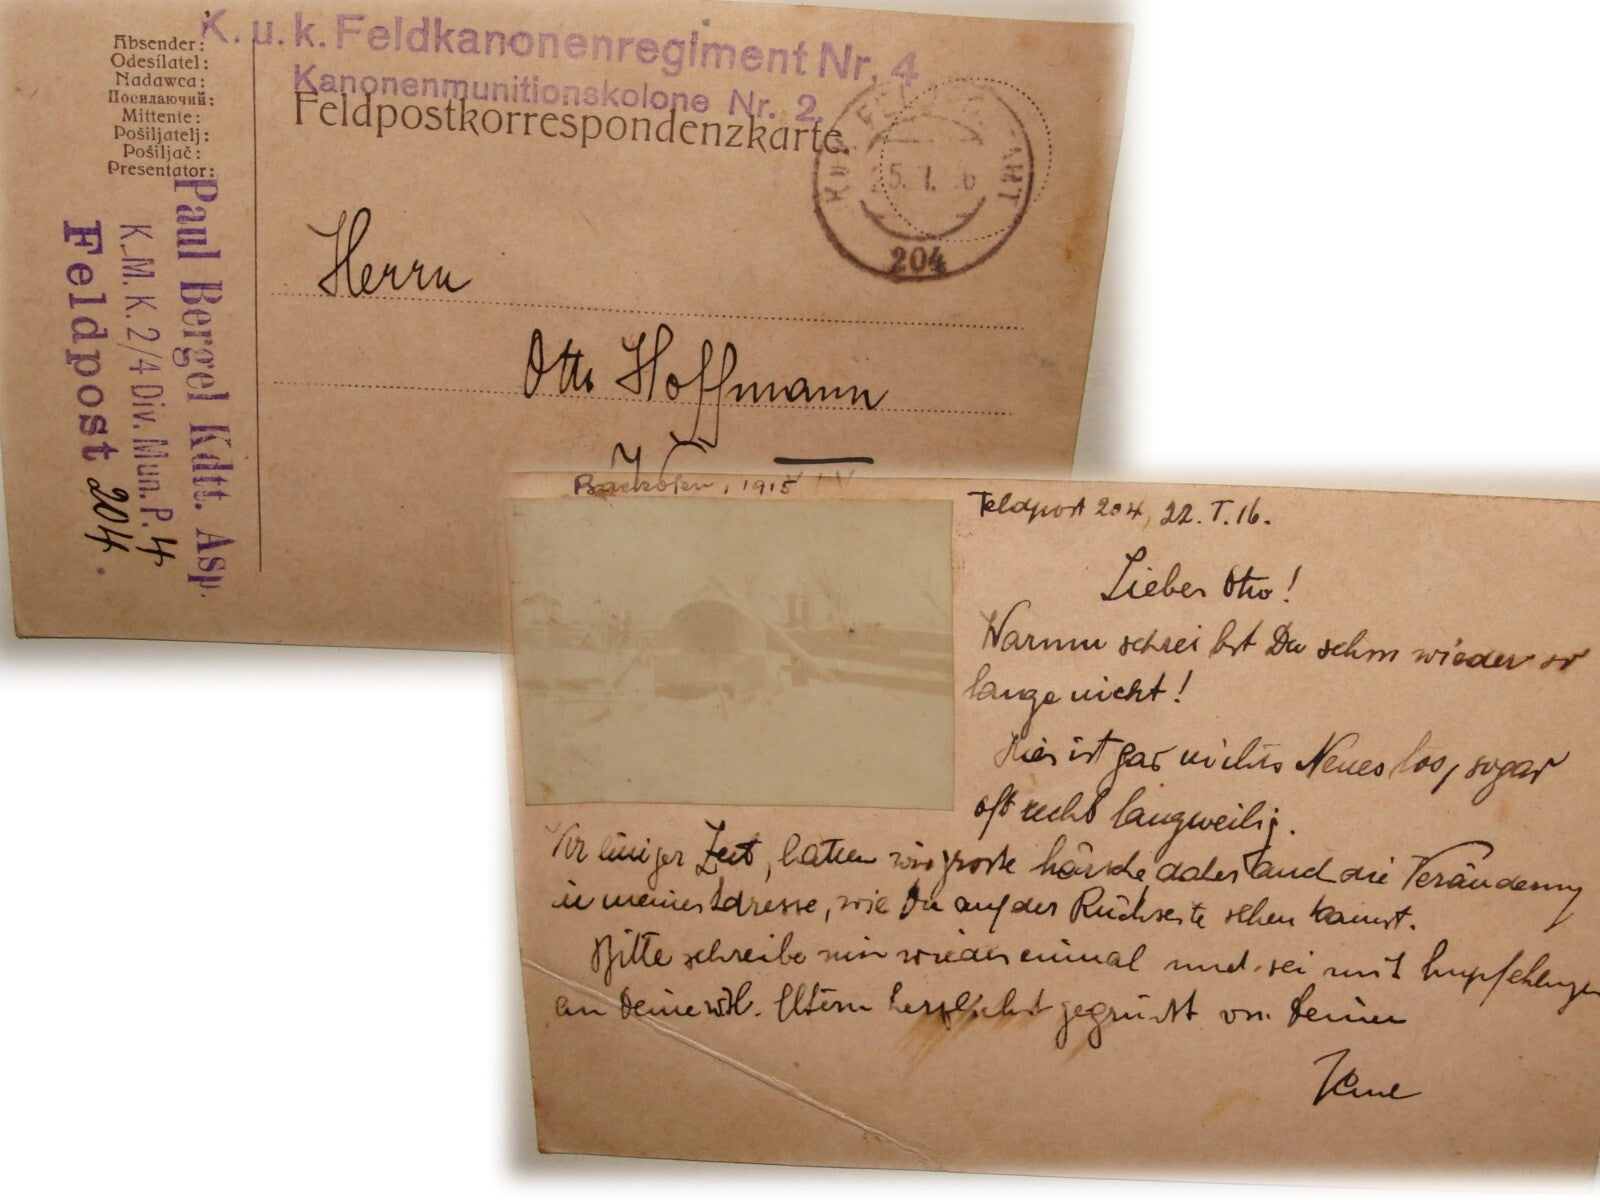 K. u. k. Feldkanonenregiment Nr. 4
Kanonenmunitionskolone Nr. 2.
Feldpostkorrespondenzkarte.
Absender:
Odesílatel:
Nadawca:
Посилаючий:
Mittente:
Pošiljatelj:
Pošiljač:
Presentator:
Paul Bergel Kdtt. Asp.
K. M. K. 2/4 Div. Mun. P. 4
Feldpost 204.
204
Herrn
Otto Hoffmann
1915
Feldpost 204, 22. I. 16.
Lieber Otto!
Warum schreibst Du schon wieder so
lange nicht!
Hier ist gar nichts Neues los, sogar
oft recht langweilig.
Vor einiger Zeit, hatten wir große daher auch die Veränderung
in meiner Adresse, wie Du auf der Rückseite sehen kannst.
Bitte schreibe mir wieder einmal und sei mit Empfehlungen
an Deine Eltern herzlichst gegrüsst von Deinem
Paul